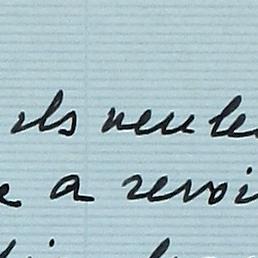 ils veule
e a revoi